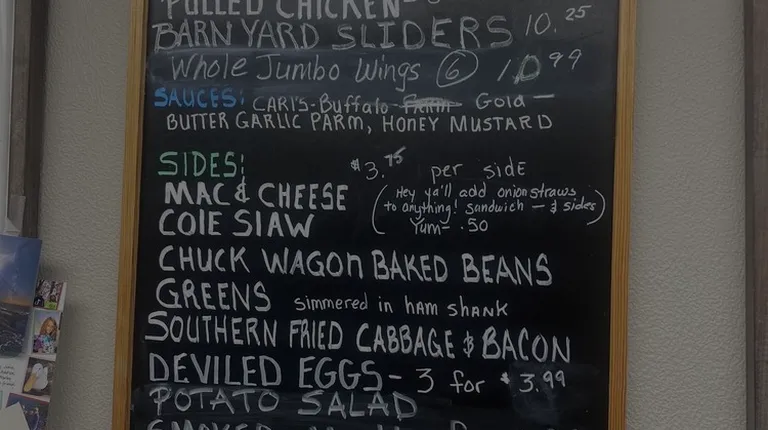 PULLED CHICKEN-
BARN YARD SLIDERS 10.25
Whole Jumbo Wings 6 10.99
SAUCES: CARI'S-Buffalo Gold —
BUTTER GARLIC PARM, HONEY MUSTARD
SIDES: $3.75 per side
MAC & CHEESE (Hey ya'll add onion straws
to anything! sandwich — & sides)
COlE SlAW Yum- .50
CHUCK WAGOn BAKED BEANS
GREENS simmered in ham shank
SOUTHERN FRIED CABBAGE & BACON
DEVILED EGGS- 3 for $3.99
POTATO SALAD
SMOKED